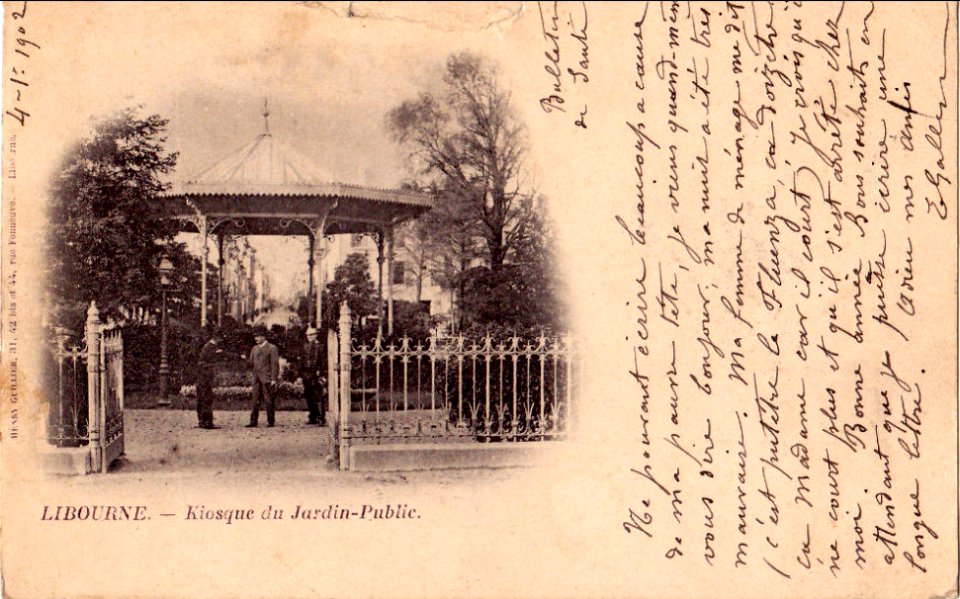 4-1: 1902
HENRY GUILLIER, 31, 42 bis et 44, rue Fonneuve. — Libourne
LIBOURNE. — Kiosque du Jardin-Public.
Bulletin
de Santé
Ne pouvant écrire beaucoup a cause
de ma pauvre tête, je viens quand-mêm
vous dire bonjour; ma nuit a été très
mauvaise. Ma femme de ménage me dit
(c'est putètre la Fluenza, ca doizetre
ca Madame car il court) je crois qu'i
ne court plus et qu'il s'est arrêté chez
moi. Bonne année Bons souhaits en
attendant que je puisse écrire une
longue lettre. Adieu mes amis